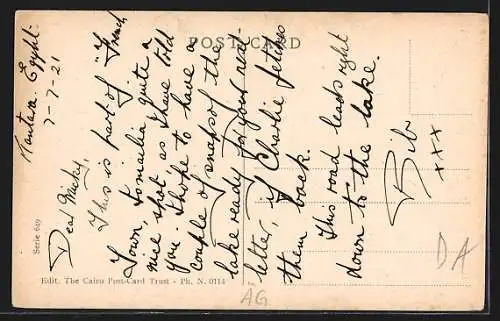 POSTCARD
Kantara. Egypt.
7-7-21
Dear Micky,
This is part of "French
Town, Ismailia quite a
nice spot as I have told
you. I hope to have a
couple of snaps of the
lake ready for your next
letter, if Charlie fetches
them back.
This road leads right
down to the lake.
Bib
xxx
Serie 649
Edit. The Cairo Post-Card Trust - Ph. N. 0114
AG
DA